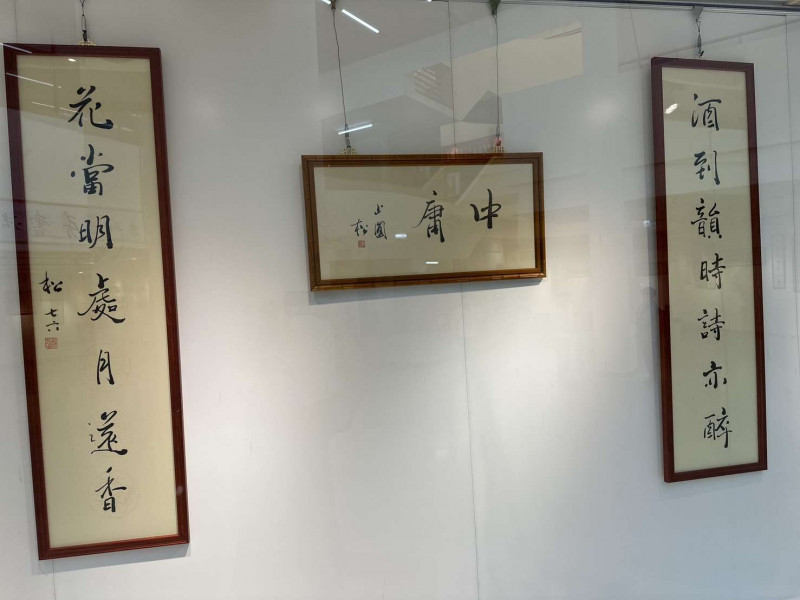 酒到韻時詩亦醉
中庸
松
花當明處月還香
松七六